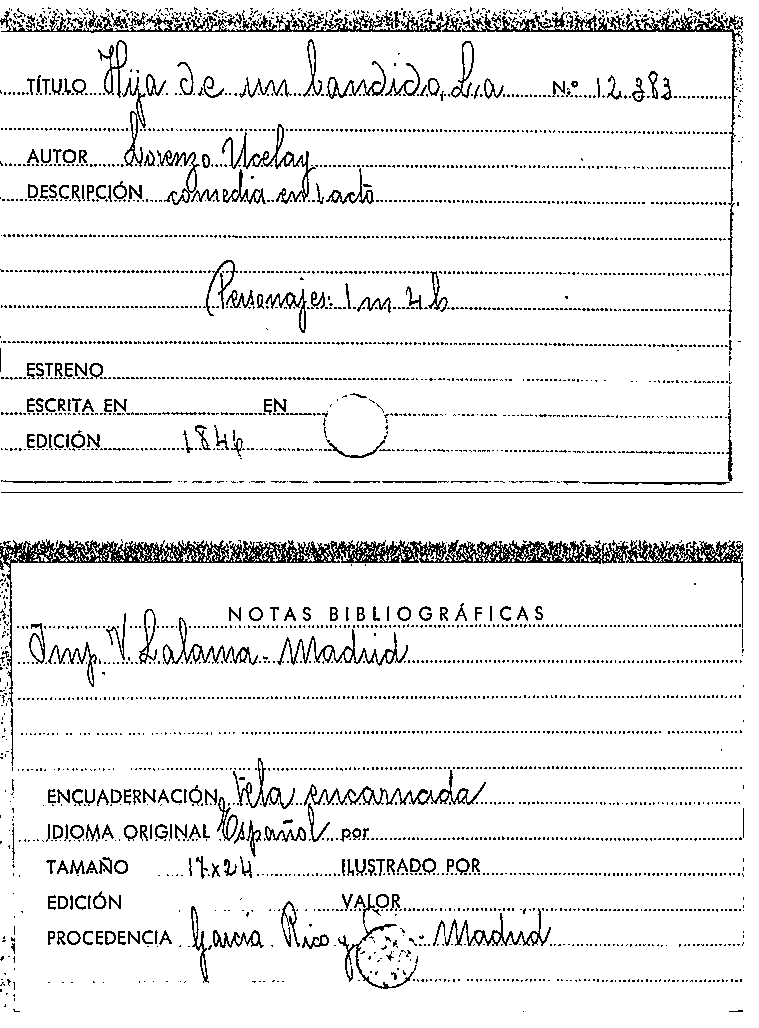 TÍTULO Hija de un bandido, La N.º 12.383
AUTOR Lorenzo Ucelay
DESCRIPCIÓN comedia en 1 acto
Personajes: 1 m 4 h
ESTRENO
ESCRITA EN EN
EDICIÓN 1846
NOTAS BIBLIOGRÁFICAS
Imp. V. Lalama - Madrid
ENCUADERNACIÓN Tela encarnada
IDIOMA ORIGINAL Español por
TAMAÑO 17x24 ILUSTRADO POR
EDICIÓN VALOR
PROCEDENCIA García Rico y - Madrid